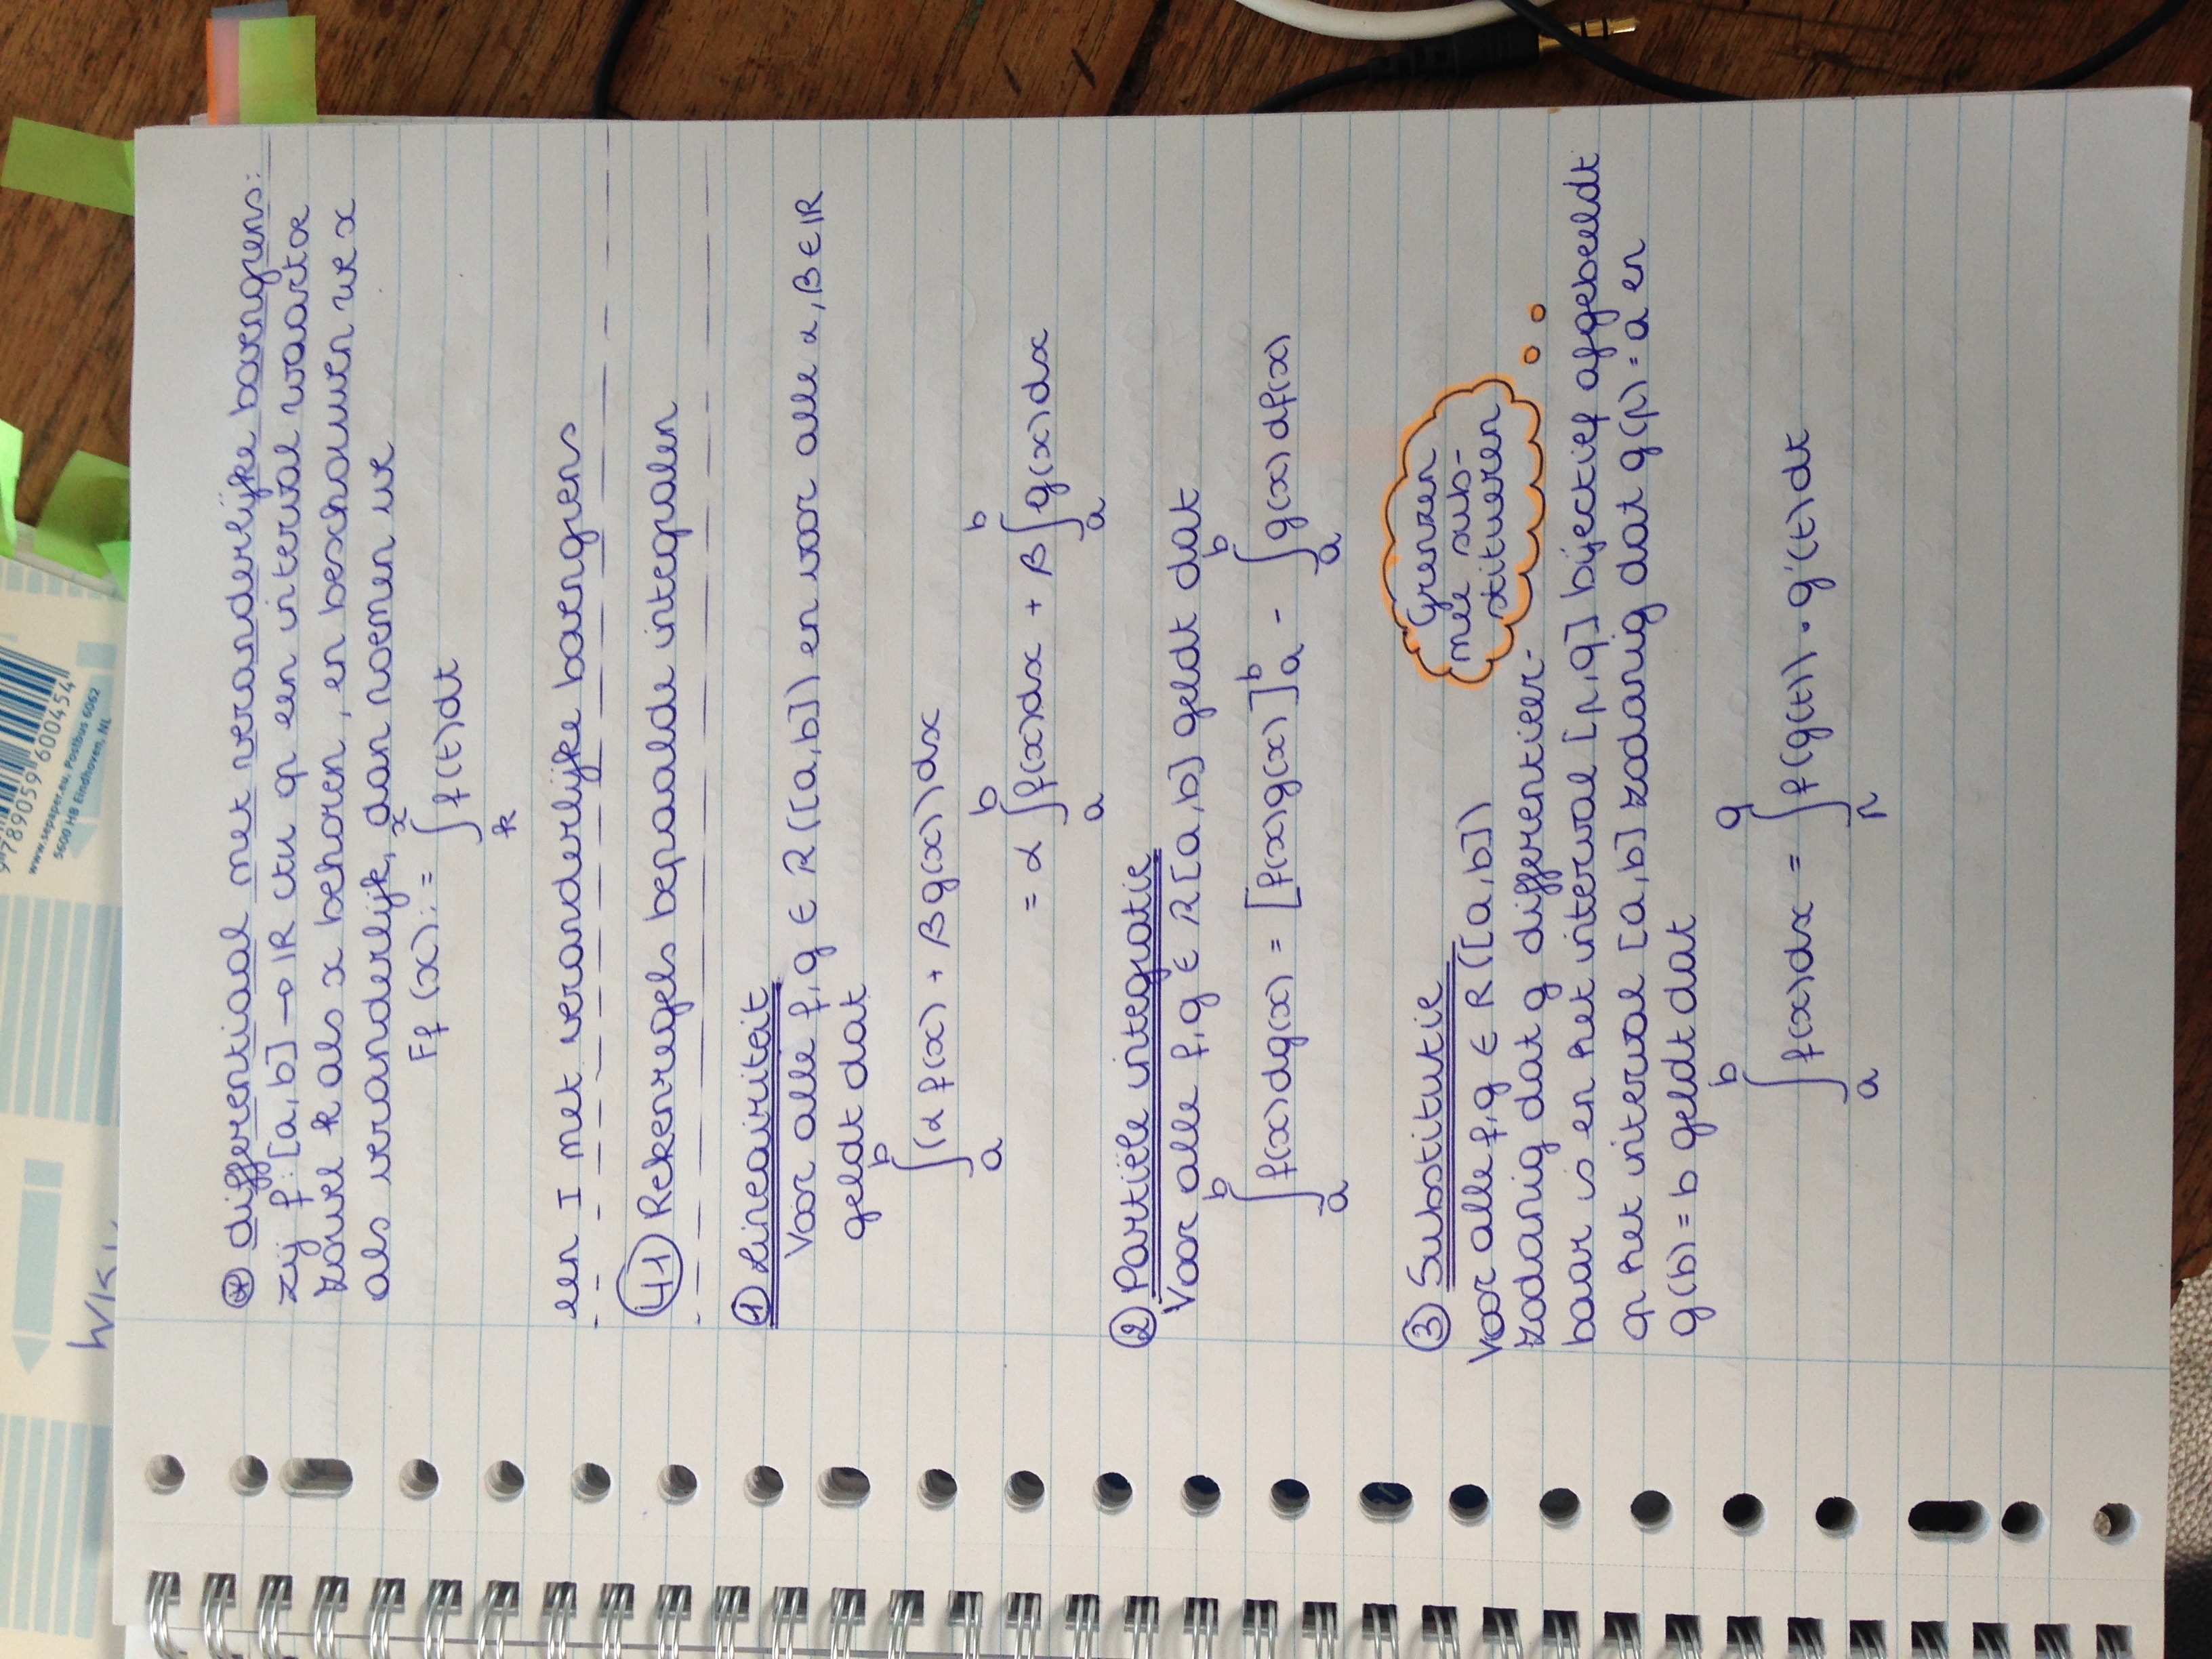 9789059600454
www.sepaper.eu, Postbus 6062
5600 HB Eindhoven, NL
⊛ differentiaal met veranderlijke bovengrens:
zij f: [a,b] → ℝ ctu op een interval waartoe
zowel k als x behoren, en beschouwen we x
als veranderlijk, dan noemen we
Ff (x) := ∫ₖˣ f(t)dt
een I met veranderlijke bovengrens
41 Rekenregels bepaalde integralen
① Lineairiteit
Voor alle f,g ∈ R([a,b]) en voor alle α,β∈ℝ
geldt dat
∫_a^b (α f(x) + βg(x))dx
= α ∫_a^b f(x)dx + β ∫_a^b g(x)dx
② Partiële integratie
Voor alle f,g ∈ R[a,b] geldt dat
∫_a^b f(x)dg(x) = [f(x)g(x)]_a^b - ∫_a^b g(x)df(x)
③ Substitutie
Grenzen
mee sub-
stitueren
Voor alle f,g ∈ R([a,b])
zodanig dat g differentieer-
baar is en het interval [p,q] bijectief afgebeeldt
op het interval [a,b] zodanig dat g(p) = a en
g(b) = b geldt dat
∫_a^b f(x)dx = ∫_p^q f(g(t)) • g'(t)dt